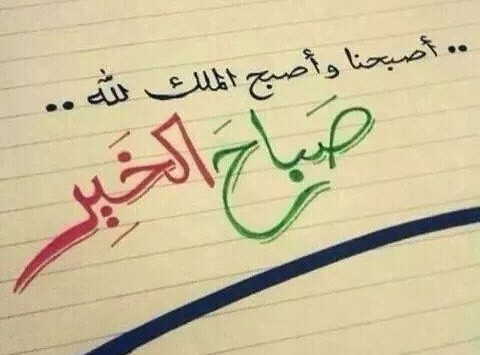 .. أصبحنا وأصبح الملك لله ..
صَبَاحَ الخَيرِ